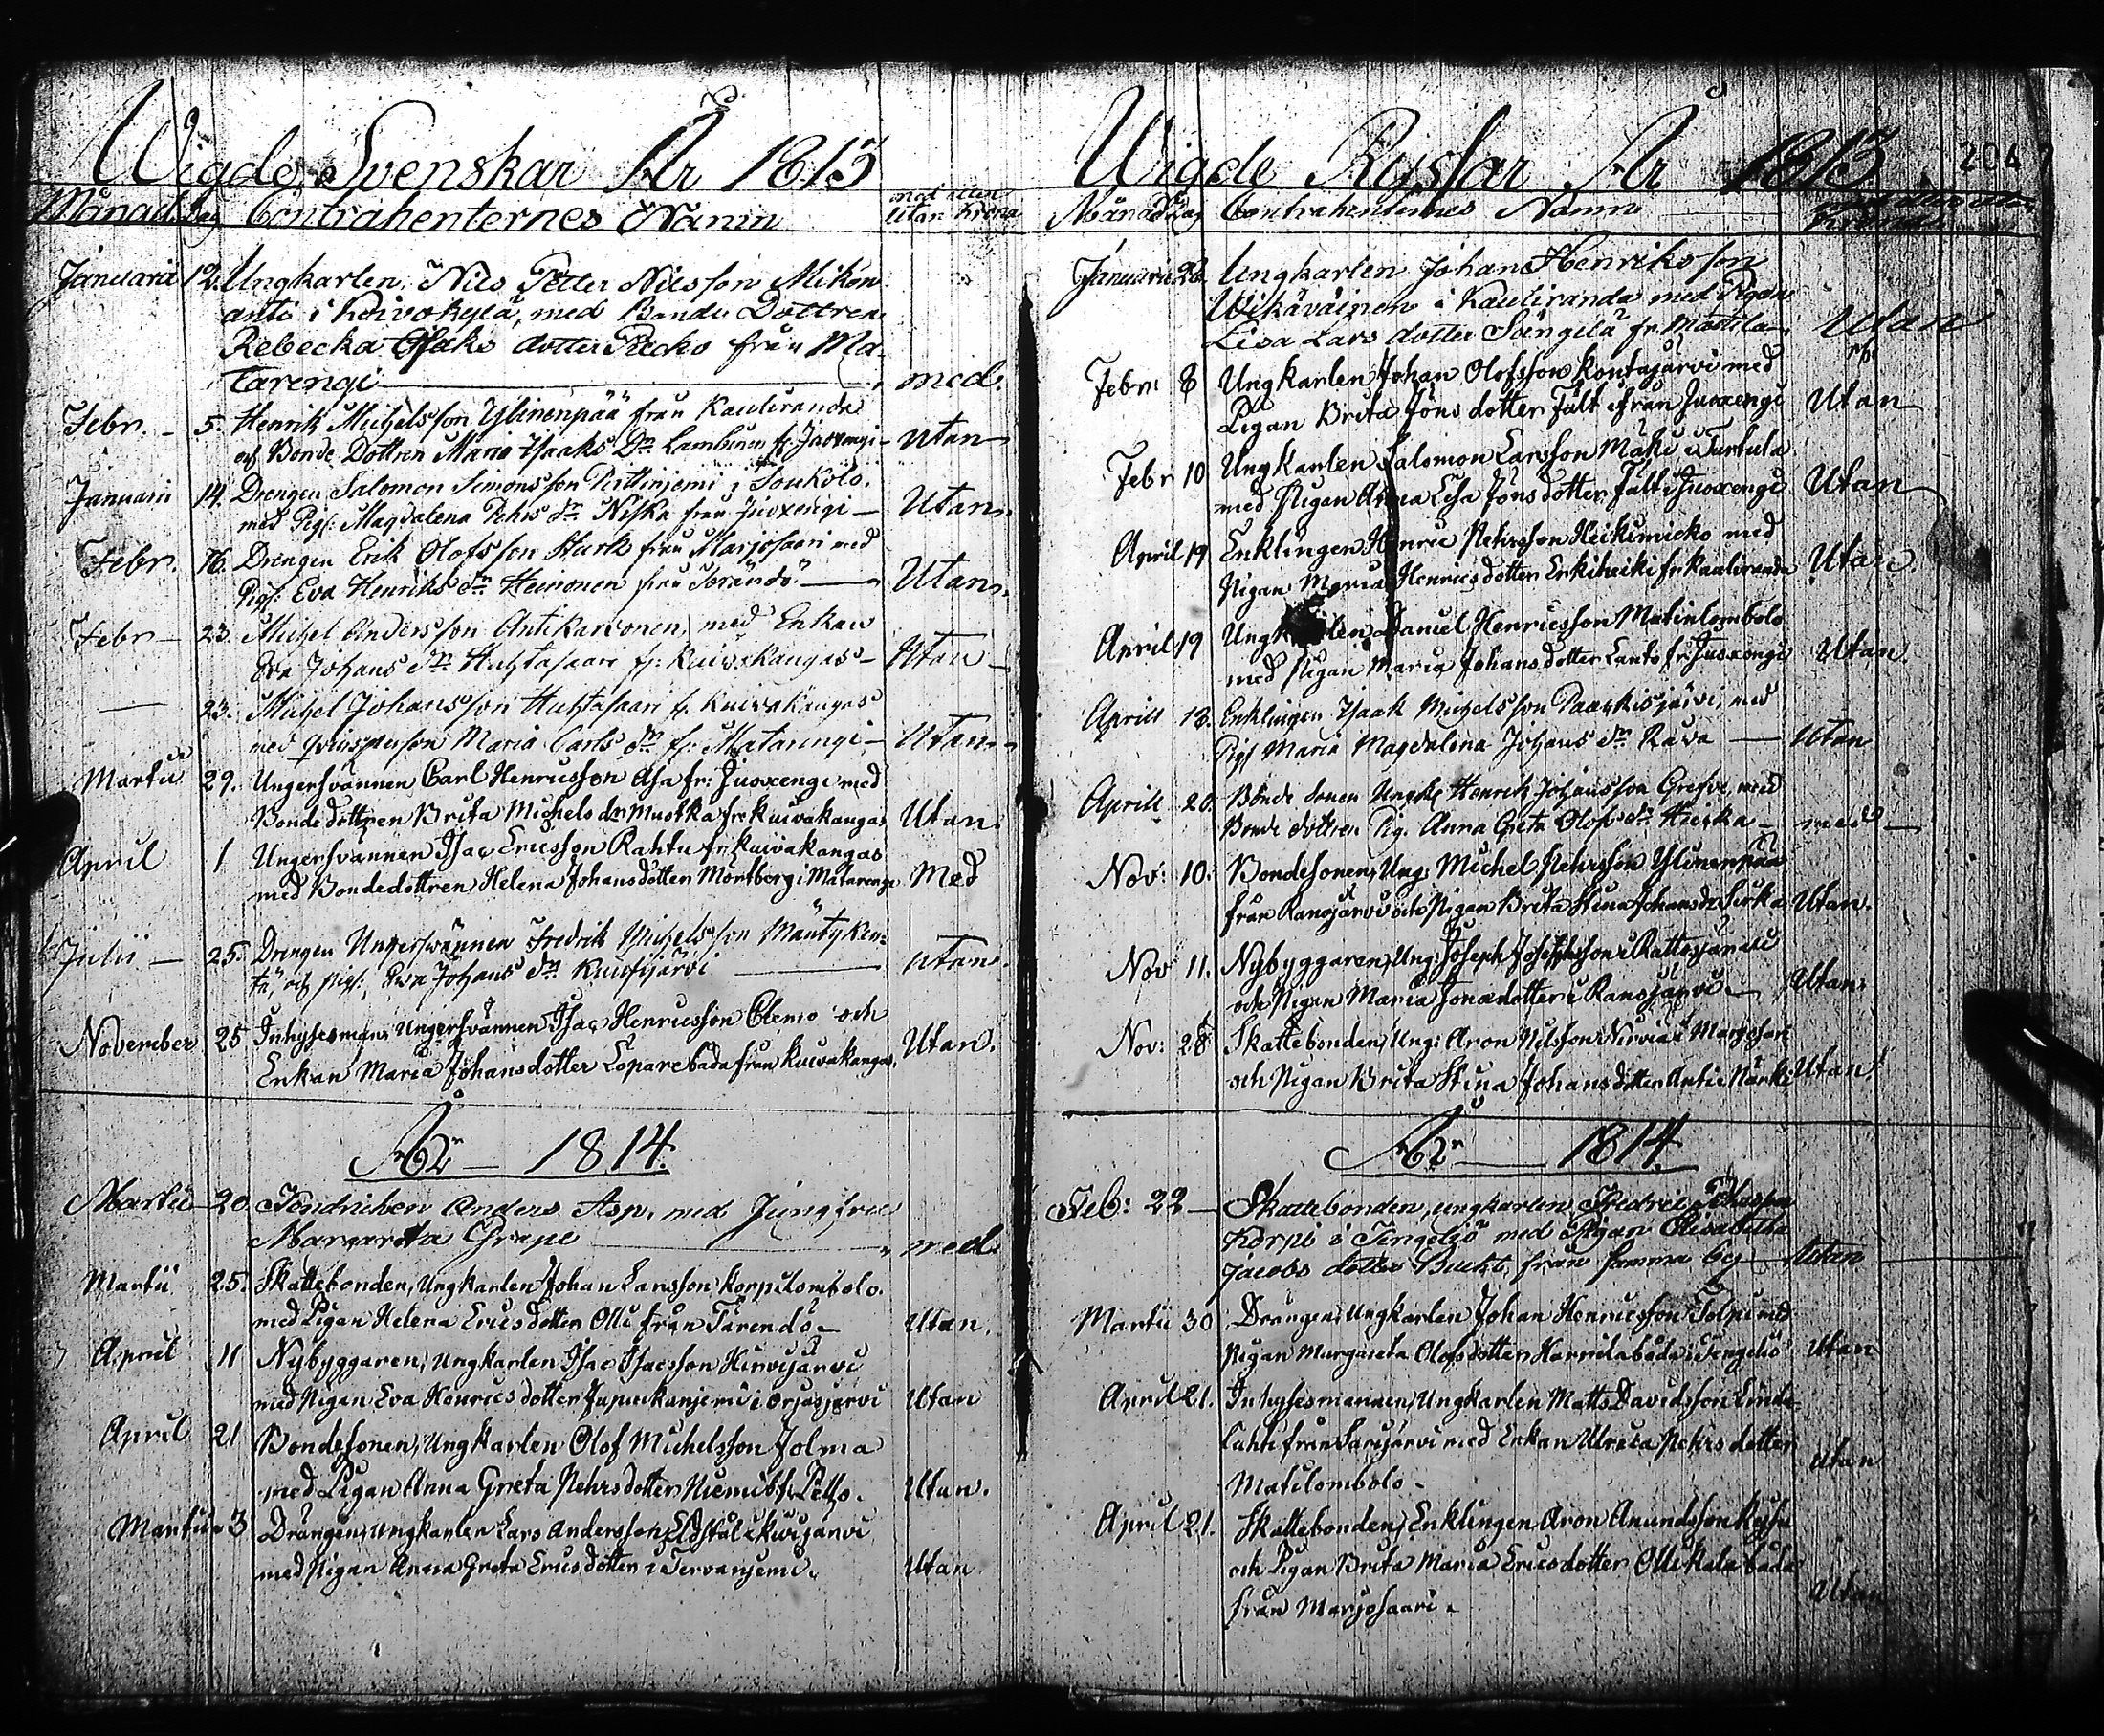 Wigde Svenskar År 1813
Månad. Dag Contrahenternes Namn med eller utan Krona
Januarii 12. Ungkarlen Nils Petter Nilsson Mikon
anti i Koivokylä, med Bonde Dottren
Rebecka Isaks dotter Picko från Ma
tarengi — med.
Febr. – 5. Henrik Michelsson Ylinenpää från Kauliranda
och Bonde Dottren Maria Isaaks Dr. Lambinen fr. Juoxengi – utan
Januarii 14. Drengen Salomon Simonsson Pittinjemi i Soukolo.
med Pig: Magdalena Pehrs dr Niska från Juoxengi – Utan.
Febr. 16. Drengen Erik Olofsson Stark från Marjosaari med
Pig: Eva Henriks dr. Heinonen från Tärändö. — Utan.
Febr – 23. Michel Andersson Antikarvonen, med Enkan
Eva Johans dr Huhtasaari fr: Kuivakangas – Utan –
— 23. Michel Johansson Huhtasaari fr Kuivakangas
med qvinsperson Maria Carls dr fr: Matarengi – Utan –
Martii 29. Ungersvännen Carl Henricsson Asa fr: Juoxengi med
Bondedottren Brita Michels dr Muotka fr Kuivakangas Utan.
April 1 Ungersvännen Isac Ericsson Rahtu fr Kuivakangas
med Bondedottren Helena Johansdotter Mörtberg i Matarengi Med
Julii – 25. Drengen Ungerswännen Fredrik Michelsson Mäntyken-
tä, och pig: Ewa Johans dr Kuusijärvi — utan.
November 25 Inhysesman, Ungersvännen Isac Henricsson Clemo och
Enkan Maria Johansdotter Loparebada från Kuivakangas. Utan.
År – 1814.
Martii – 20. Fendricken Anders Asp, med Jungfru
Margareta Grape — med.
Martii 25. Skattebonden, Ungkarlen Johan Larsson Korpilombolo.
med Pigan Helena Ericsdotter Olli från Tärendö – Utan.
April 11 Nybyggaren, Ungkarlen Isac Isacsson Hirvijärvi
med Pigan Eva Henricsdotter Jupuckanjemi i Orjasjärvi Utan
April 21 Bondesonen, Ungkarlen Olof Michelsson Jolma
med Pigan Anna Greta Pehrsdotter Niemi fr Pello. Utan.
Martii 3 Drängen, Ungkarlen Lars Andersson Eldstål i Kuijärvi
med Pigan Anna Greta Ericsdotter i Tervanjemi. Utan
Wigde Ryssar År 1813 204
Månad Dag Contrahenternes Namn
Januarii 26. Ungkarlen Johan Henriksson
Wikäväinen i Kauliranda med Pigan
Lisa Lars dotter Sängelä fr. Mattila – Utan
Febru 8 Ungkarlen Johan Olofsson Kontajärvi med
Pigan Brita Jöns dotter Fält ifrån Juoxengi Utan
Febr 10 Ungkarlen Salomon Larsson Mäki i Turtula
med Pigan Anna Lisa Jönsdotter Fält i Juoxengi Utan
April 19 Enklingen Henric Pehrsson Heikinwicko med
Pigan Maria Henricsdotter Erkiheiki fr Kauliranda Utan
April 19 Ungkarlen Daniel Henricsson Matinlombolo
med Pigan Maria Johansdotter Lanto fr. Juoxengi Utan.
Aprill 13. Enklingen Isaak Michelsson Paarkisjärvi, med
Pig Maria Magdalena Johans dr Rava — utan
Aprill 20. Bonde sonen Ungk: Henrik Johansson Grefve, med
Bonde dottren Pig. Anna Greta Olofs dr Hiecka – med –
Nov: 10. Bondesonen, Ung: Michel Pehrsson Ylinenpää
från Ranojärvi och Pigan Brita Stina Johansdr Sirka Utan.
Nov 11. Nybyggaren, Ung: Joseph Josephsson i Rattosjärvi
och Pigan Maria Jonædotter i Ranojärvi – Utan.
Nov: 28 Skattebonden, Ung: Aron Nilsson Nirvia i Marjosari
och Pigan Brita Stina Johansdotter Antin Närki Utan.
År — 1814.
Feb: 22 – Skattebonden, ungkarlen Fredric Johansson
Korpi i Tengeliö med Pigan Elisabetha
Jacobs dotter Bucht från samma by – Utan
Martii 30 Drängen, Ungkarlen Johan Henricsson Tolpi med
Pigan Margareta Olofsdotter Harrilabada i Tengeliö Utan
April 21. Inhysesmannen, Ungkarlen Matts Davidsson Linda-
lahti från Sarijärvi med Enkan Ulrica Pehrs dotter
Matilombolo – utan
April 21. Skattebonden, Enklingen Aron Anundsson Kyhn
och Pigan Brita Maria Ericsdotter Ollikalabada
från Marjosaari. Utan